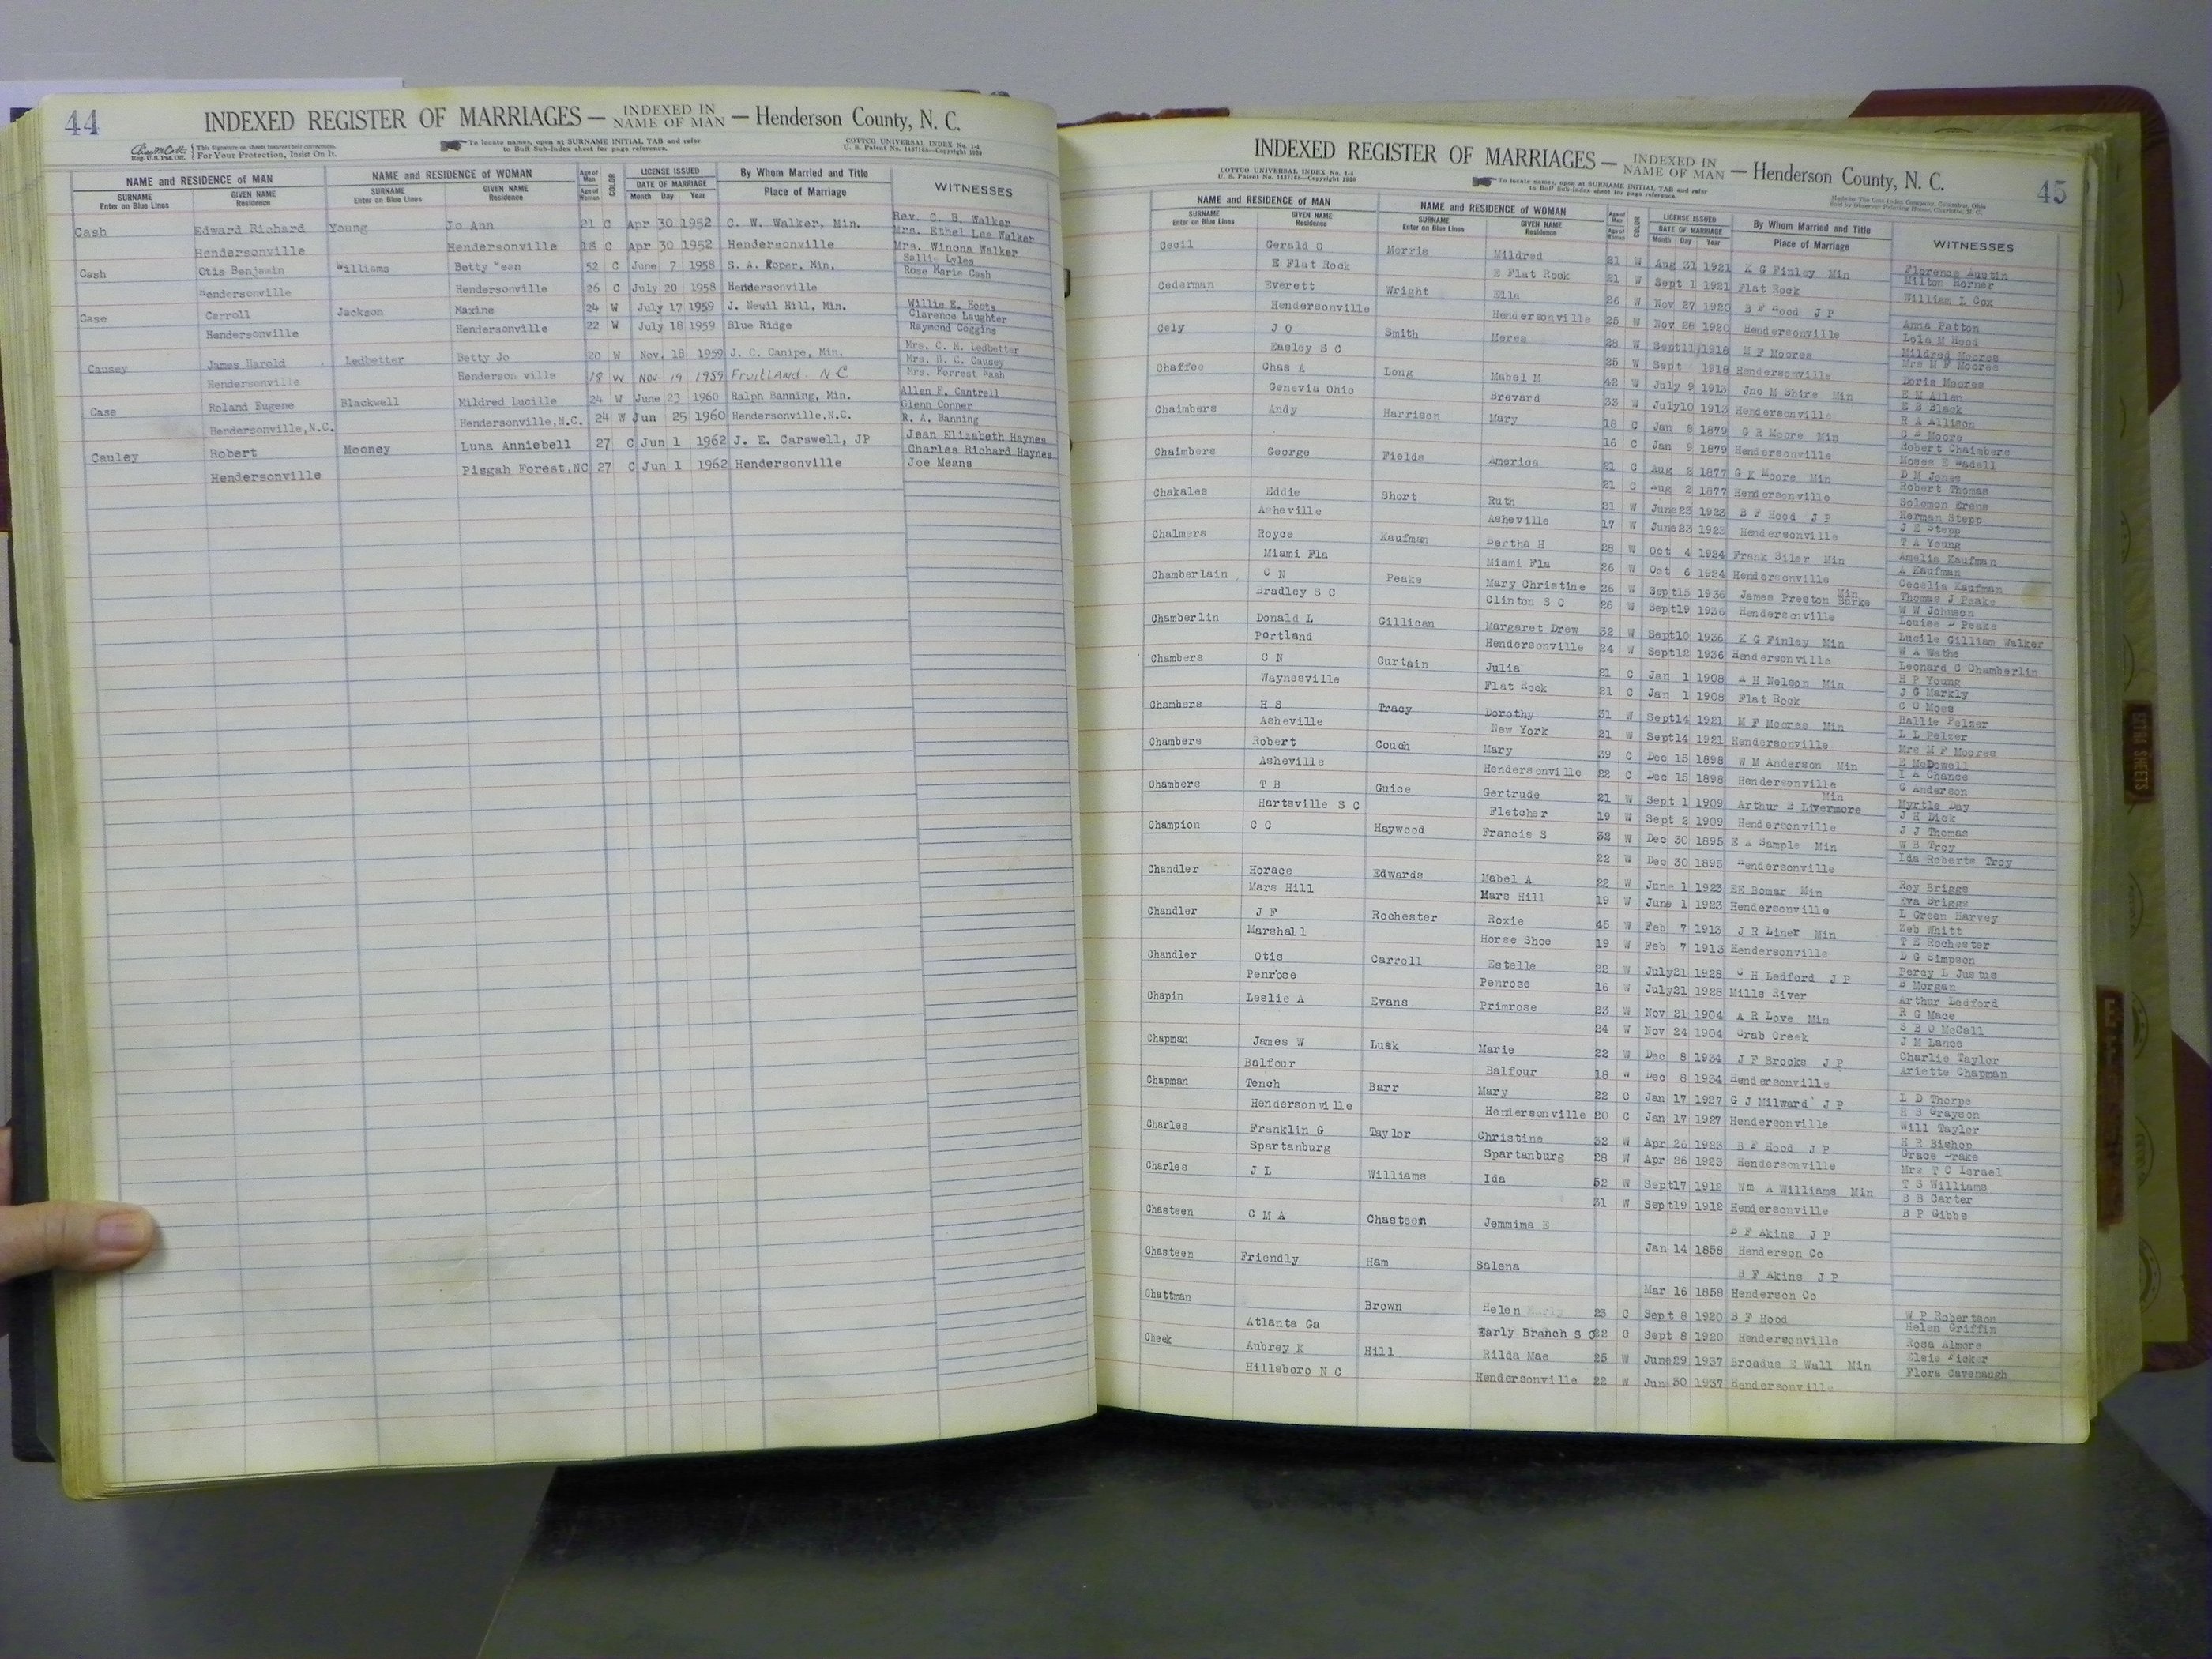 44
INDEXED REGISTER OF MARRIAGES — INDEXED IN NAME OF MAN — Henderson County, N. C.
Reg. U.S. Pat. Off. For Your Protection, Insist On It.
To locate names, open at SURNAME INITIAL TAB and refer
to Buff Sub-Index sheet for page reference.
COTTCO UNIVERSAL INDEX No. 1-4
NAME and RESIDENCE OF MAN NAME and RESIDENCE OF WOMAN Age of Man COLOR LICENSE ISSUED By Whom Married and Title WITNESSES
SURNAME GIVEN NAME SURNAME GIVEN NAME Age of Woman DATE OF MARRIAGE Place of Marriage
Enter on Blue Lines Residence Enter on Blue Lines Residence Month Day Year
Cash Edward Richard Young Jo Ann 21 C Apr 30 1952 C. W. Walker, Min. Rev. C. B. Walker
Mrs. Ethel Lee Walker
Hendersonville Hendersonville 18 C Apr 30 1952 Hendersonville Mrs. Winona Walker
Cash Otis Benjamin Williams Betty Jean 52 C June 7 1958 S. A. Roper, Min. Sallie Lyles
Rose Marie Cash
Hendersonville Hendersonville 26 C July 20 1958 Hendersonville
Case Carroll Jackson Maxine 24 W July 17 1959 J. Newil Hill, Min. Willie E. Hoots
Clarence Laughter
Hendersonville Hendersonville 22 W July 18 1959 Blue Ridge Raymond Coggins
Causey James Harold Ledbetter Betty Jo 20 W Nov. 18 1959 J. C. Canipe, Min. Mrs. C. H. Ledbetter
Mrs. H. C. Causey
Hendersonville Henderson ville 18 W Nov 19 1959 Fruitland N C Mrs. Forrest Wash
Case Roland Eugene Blackwell Mildred Lucille 24 W June 23 1960 Ralph Banning, Min. Allen F. Cantrell
Glenn Conner
Hendersonville,N.C. Hendersonville,N.C. 24 W Jun 25 1960 Hendersonville,N.C. R. A. Banning
Cauley Robert Mooney Luna Anniebell 27 C Jun 1 1962 J. E. Carswell, JP Jean Elizabeth Haynes
Charles Richard Haynes
Hendersonville Pisgah Forest,NC 27 C Jun 1 1962 Hendersonville Joe Means
INDEXED REGISTER OF MARRIAGES — INDEXED IN NAME OF MAN — Henderson County, N. C.
45
COTTCO UNIVERSAL INDEX No. 1-4
To locate names, open at SURNAME INITIAL TAB and refer
to Buff Sub-Index sheet for page reference.
NAME and RESIDENCE OF MAN NAME and RESIDENCE OF WOMAN Age of Man COLOR LICENSE ISSUED By Whom Married and Title WITNESSES
SURNAME GIVEN NAME SURNAME GIVEN NAME Age of Woman DATE OF MARRIAGE Place of Marriage
Enter on Blue Lines Residence Enter on Blue Lines Residence Month Day Year
Cecil Gerald O Morris Mildred 21 W Aug 31 1921 K G Finley Min Florence Austin
Milton Horner
E Flat Rock E Flat Rock 21 W Sept 1 1921 Flat Rock William L Cox
Cederman Everett Wright Ella 26 W Nov 27 1920 B F Hood J P Anna Patton
Hendersonville Hendersonville 25 W Nov 28 1920 Hendersonville Lola M Hood
Cely J O Smith Meres 28 W Sept11 1918 M F Moores Mildred Moores
Mrs M F Moores
Easley S C 25 W Sept 1918 Hendersonville Doris Moores
Chaffee Chas A Long Mabel M 42 W July 9 1913 Jno M Shire Min E M Allen
E B Black
Genevia Ohio Brevard 33 W July10 1913 Hendersonville R A Allison
Chaimbers Andy Harrison Mary 18 C Jan 8 1879 G R Moore Min C P Moore
Robert Chaimbers
16 C Jan 9 1879 Hendersonville Moses E Wadell
Chaimbers George Fields America 21 C Aug 2 1877 G K Moore Min D M Jones
Robert Thomas
21 C Aug 2 1877 Hendersonville Solomon Erens
Chakales Eddie Short Ruth 21 W June23 1923 B F Hood J P Herman Stepp
J E Stepp
Asheville Asheville 17 W June23 1923 Hendersonville T A Young
Chalmers Royce Kaufman Bertha H 28 W Oct 4 1924 Frank Siler Min Amelia Kaufman
A Kaufman
Miami Fla Miami Fla 26 W Oct 6 1924 Hendersonville Cecelia Kaufman
Chamberlain C N Peake Mary Christine 26 W Sept15 1936 James Preston Burke Min Thomas J Peake
W W Johnson
Bradley S C Clinton S C 26 W Sept19 1936 Hendersonville Louise D Peake
Chamberlin Donald L Gillican Margaret Drew 32 W Sept10 1936 K G Finley Min Lucile Gilliam Walker
W A Wathe
Portland Hendersonville 24 W Sept12 1936 Hendersonville Leonard C Chamberlin
Chambers C N Curtain Julia 21 C Jan 1 1908 A H Nelson Min H P Young
J G Markly
Waynesville Flat Rock 21 C Jan 1 1908 Flat Rock C O Moes
Chambers H S Tracy Dorothy 31 W Sept14 1921 M F Moores Min Hallie Pelzer
L L Pelzer
Asheville New York 21 W Sept14 1921 Hendersonville Mrs M F Moores
Chambers Robert Couch Mary 39 C Dec 15 1898 W M Anderson Min E McDowell
I A Chance
Asheville Hendersonville 22 C Dec 15 1898 Hendersonville G Anderson
Chambers T B Guice Gertrude 21 W Sept 1 1909 Arthur B Livermore Min Myrtle Day
J H Dick
Hartsville S C Fletcher 19 W Sept 2 1909 Hendersonville J J Thomas
Champion C C Haywood Francis S 32 W Dec 30 1895 E A Sample Min W B Troy
Ida Roberts Troy
22 W Dec 30 1895 Hendersonville
Chandler Horace Edwards Mabel A 22 W June 1 1923 EE Bomar Min Roy Briggs
Eva Briggs
Mars Hill Mars Hill 19 W June 1 1923 Hendersonville L Green Harvey
Chandler J F Rochester Roxie 45 W Feb 7 1913 J R Liner Min Zeb Whitt
T E Rochester
Marshall Horse Shoe 19 W Feb 7 1913 Hendersonville D G Simpson
Chandler Otis Carroll Estelle 22 W July21 1928 C H Ledford J P Percy L Justus
B Morgan
Penrose Penrose 16 W July21 1928 Mills River Arthur Ledford
Chapin Leslie A Evans Primrose 23 W Nov 21 1904 A R Love Min R G Mace
S B O McCall
24 W Nov 24 1904 Crab Creek J M Lance
Chapman James W Lusk Marie 22 W Dec 8 1934 J F Brooks J P Charlie Taylor
Arlette Chapman
Balfour Balfour 18 W Dec 8 1934 Hendersonville
Chapman Tench Barr Mary 22 C Jan 17 1927 G J Milward J P L D Thorpe
H B Grayson
Hendersonville Hendersonville 20 C Jan 17 1927 Hendersonville Will Taylor
Charles Franklin G Taylor Christine 32 W Apr 26 1923 B F Hood J P H R Bishop
Grace Drake
Spartanburg Spartanburg 28 W Apr 26 1923 Hendersonville Mrs T C Israel
Charles J L Williams Ida 52 W Sept17 1912 Wm A Williams Min T S Williams
B B Carter
31 W Sept19 1912 Hendersonville B P Gibbs
Chasteen C M A Chasteen Jemmima E B F Akins J P
Jan 14 1858 Henderson Co
Chasteen Friendly Ham Salena B F Akins J P
Mar 16 1858 Henderson Co
Chattman Brown Helen 23 C Sept 8 1920 B F Hood W P Robertson
Helen Griffin
Atlanta Ga Early Branch S C 22 C Sept 8 1920 Hendersonville Rosa Almore
Cheek Aubrey K Hill Rilda Mae 25 W June29 1937 Broadus E Wall Min Elsie Ficker
Flora Cavenaugh
Hillsboro N C Hendersonville 22 W Jun 30 1937 Hendersonville
EXTRA SHEETS